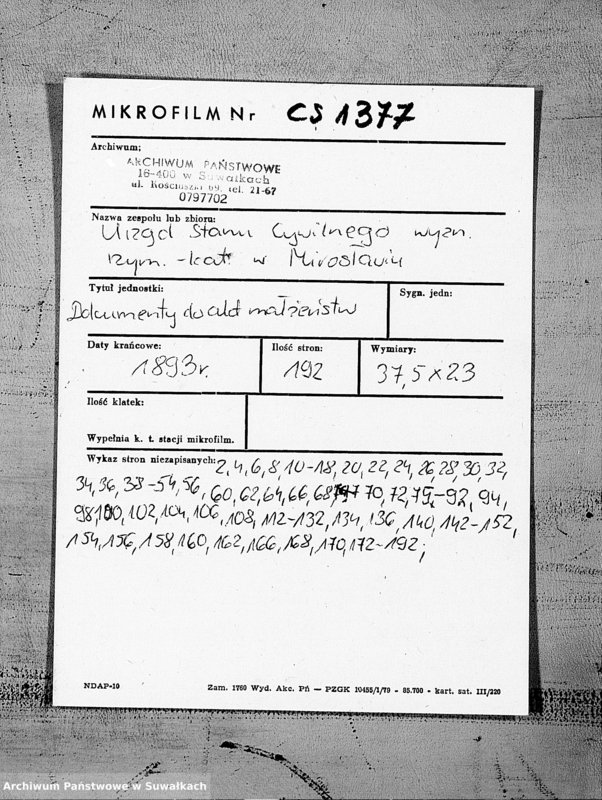 MIKROFILM Nr CS 1377
Archiwum:
ARCHIWUM PAŃSTWOWE
16-400 w Suwałkach
ul. Kościuszki 69, tel. 21-67
0797702
Nazwa zespołu lub zbioru:
Urząd Stanu Cywilnego wyzn.
rzym.-kat w Mirosławiu
Tytuł jednostki:
Sygn. jedn:
Dokumenty do akt małżeństw
Daty krańcowe:
Ilość stron:
Wymiary:
1893r.
192
37,5 x 23
Ilość klatek:
Wypełnia k. t. stacji mikrofilm.
Wykaz stron niezapisanych: 2, 4, 6, 8, 10-18, 20, 22, 24, 26 28, 30, 32,
34, 36, 38-54, 56, 60, 62, 64, 66, 68, 70, 72, 75,-92, 94,
98, 100, 102, 104, 106, 108, 112-132, 134, 136, 140, 142-152,
154, 156, 158, 160, 162, 166, 168, 170, 172-192;
NDAP-10
Zam. 1760 Wyd. Akc. Pń — PZGK 10455/I/79 - 85.700 - kart. sat. III/220
Archiwum Państwowe w Suwałkach